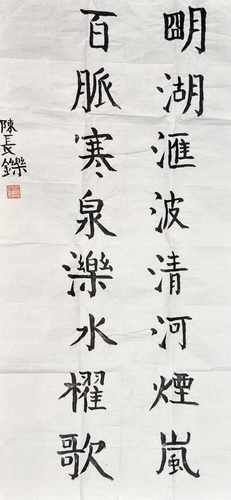 明湖滙波清河煙嵐
百脈寒泉濼水櫂歌
陳長鑅